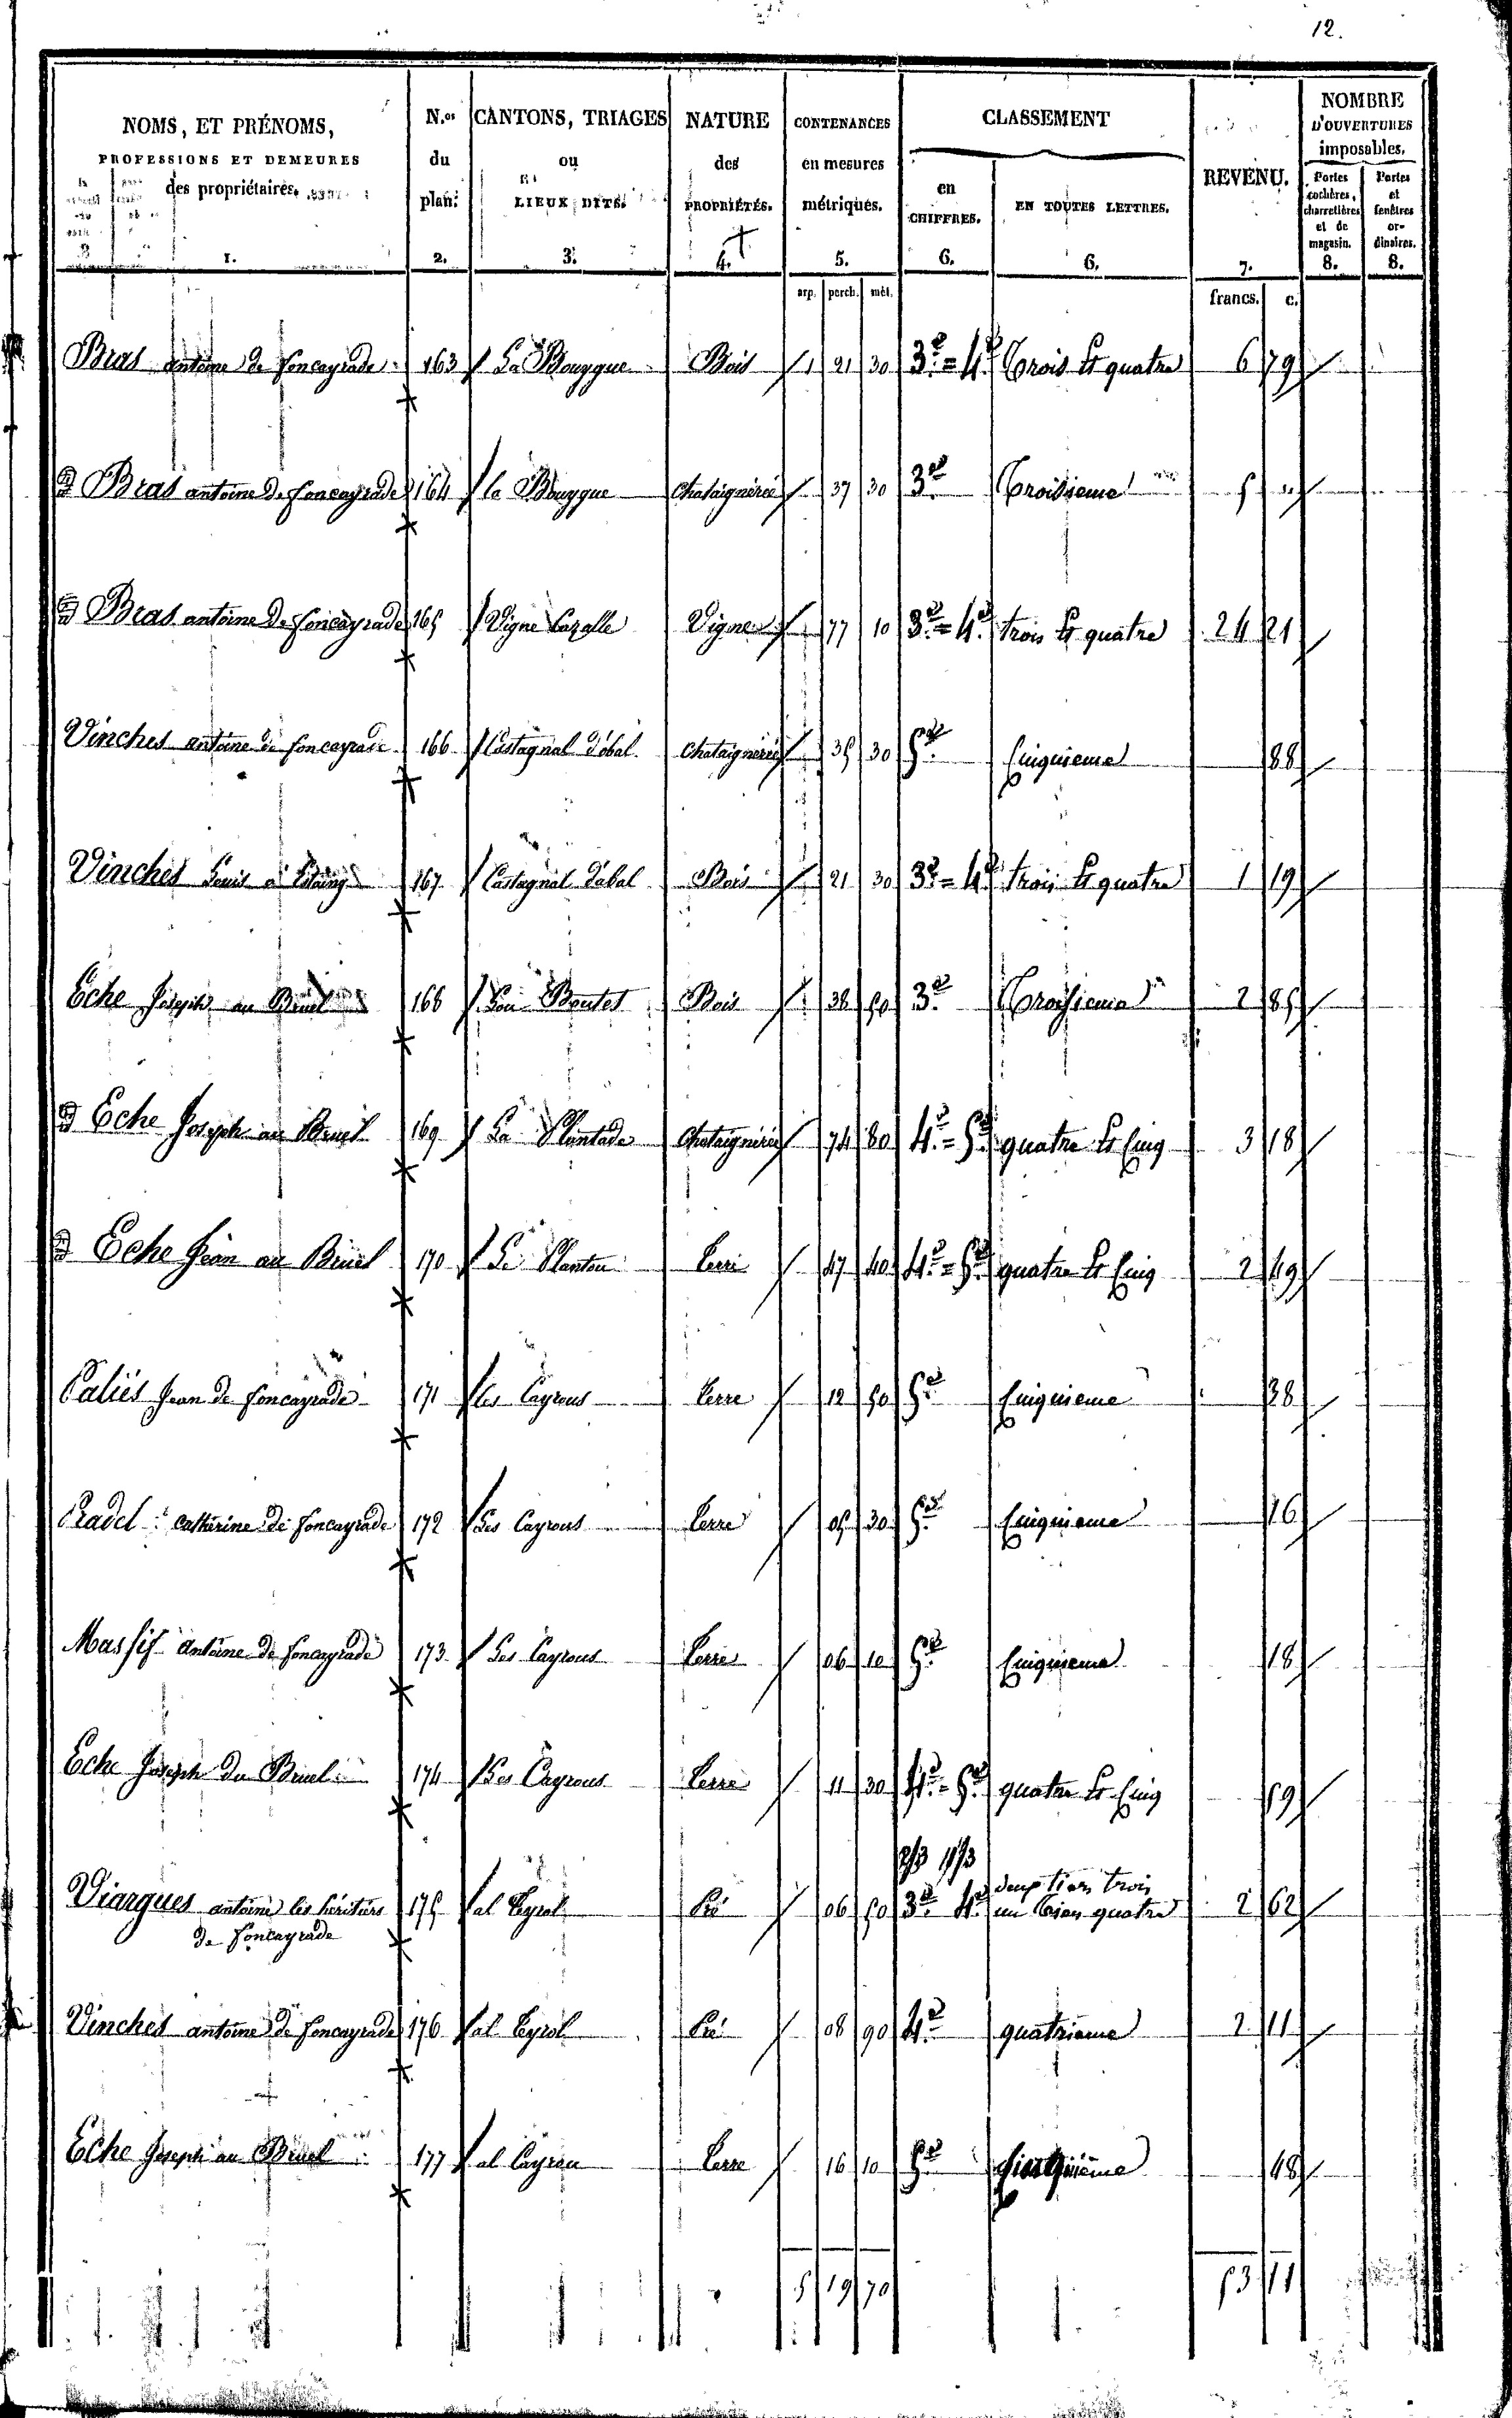 12.
NOMS, ET PRÉNOMS, PROFESSIONS ET DEMEURES des propriétaires. 1.
N.os du plan. 2.
CANTONS, TRIAGES ou LIEUX DITS. 3.
NATURE des PROPRIÉTÉS. 4.
CONTENANCES en mesures métriques. 5.
CLASSEMENT
en CHIFFRES. 6.
EN TOUTES LETTRES. 6.
REVENU. 7.
NOMBRE D'OUVERTURES imposables.
Portes cochères, charretières et de magasin. 8.
Portes et fenêtres ordinaires. 8.
arp. perch. mèt. francs. c.
Bras antoine de foncayrade 163 La Bouygue Bois 1 21 30 3e = 4e Trois Et quatre 6 79
Bras antoine de foncayrade 164 la Bouygue Chataignérée 37 30 3e Troisieme 5
Bras antoine de foncayrade 165 Vigne Cazalle Vigne 77 10 3e = 4e trois Et quatre 24 21
Vinches antoine de foncayrade 166 Castagnal d'abal Chataignérée 35 30 5e Cinquieme 88
Vinches Louis à 167 Castagnal d'abal Bois 21 30 3e = 4e trois Et quatre 1 19
Eche Joseph au Bruel 168 Lou Boutet Bois 38 50 3e Troisieme 2 85
Eche Joseph au Bruel 169 La Plantade Chataignérée 74 80 4e = 5e quatre Et Cinq 3 18
Eche Jean au Bruel 170 Le Plantou Terre 47 40 4e = 5e quatre Et Cinq 2 49
Paliés Jean de foncayrade 171 les Cayrous Terre 12 50 5e Cinquieme 38
Pradel catherine de foncayrade 172 Les Cayrous Terre 05 30 5e Cinquieme 16
Massif antoine de foncayrade 173 Les Cayrous Terre 06 10 5e Cinquieme 18
Eche Joseph du Bruel 174 Les Cayrous Terre 11 30 4e = 5e quatre Et Cinq 59
2/3 1/3
deux tiers trois
Viargues antoine les héritiers 175 al Peyrol Pré 06 50 3e 4e un tiers quatre 2 62
de foncayrade
Vinches antoine de foncayrade 176 al Peyrol Pré 08 90 4e quatrieme 2 11
Eche Joseph au Bruel 177 al Cayrou Terre 16 10 5e Cinquième 48
5 19 70 53 11